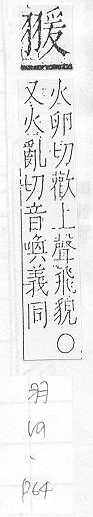 翪
火卵切歡上聲飛貌○
又火亂切音喚義同
羽
19
、
P64